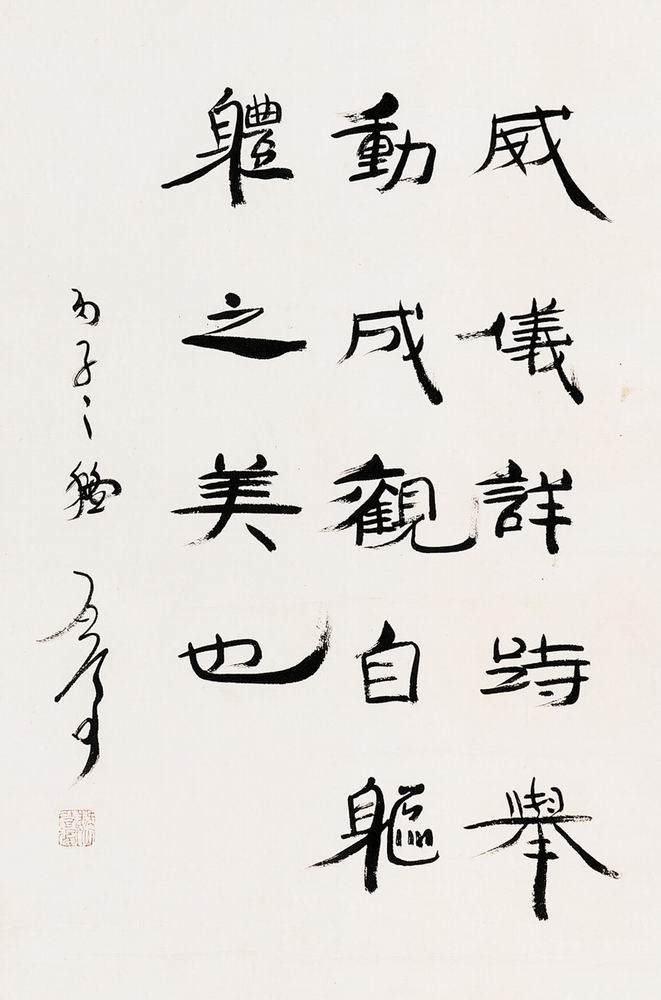 威儀詳跱舉
動成觀自軀
軆之美也
丙子之